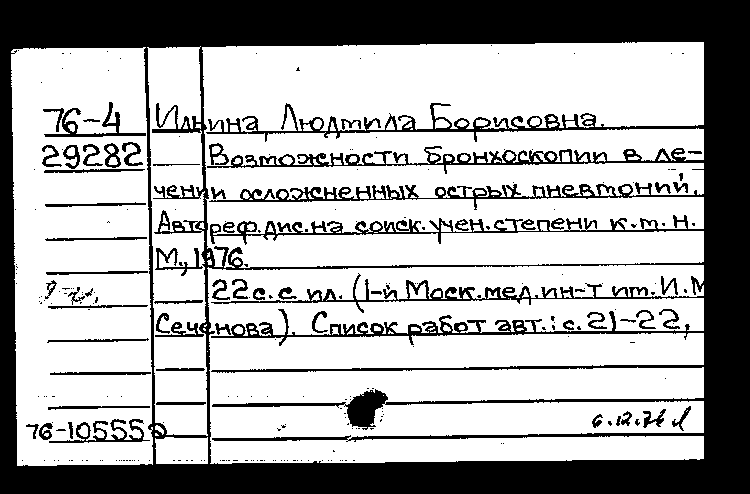 76-4 Ильина, Людмила Борисовна.
29282 Возможности бронхоскопии в ле-
чении осложненных острых пневмоний.
Автореф.дис.на соиск.учен.степени к.м.н.
М., 1976.
22с.с ил. (1-й Моск.мед.ин-т им.И.М
Сеченова). Список работ авт.: с.21-22,
76-10555
6.12.76